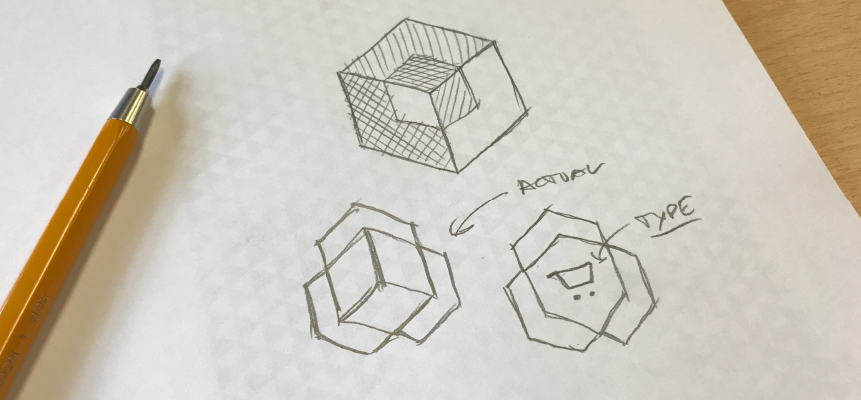 ACTUAL
TYPE